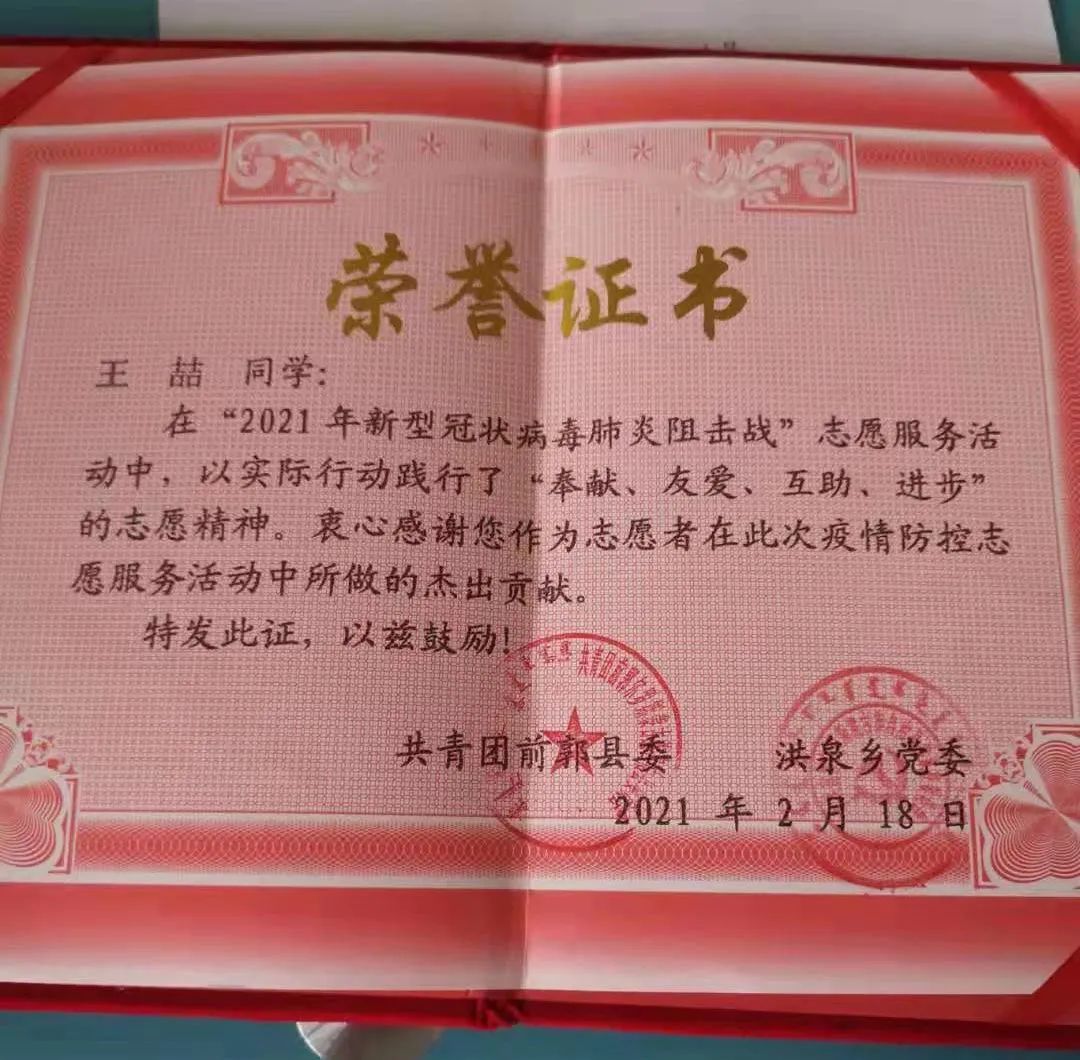 荣誉证书
王 喆 同学：
在“2021年新型冠状病毒肺炎阻击战”志愿服务活
动中，以实际行动践行了“奉献、友爱、互助、进步”
的志愿精神。衷心感谢您作为志愿者在此次疫情防控志
愿服务活动中所做的杰出贡献。
特发此证，以兹鼓励！
共青团前郭县委 洪泉乡党委
2021 年 2 月 18 日